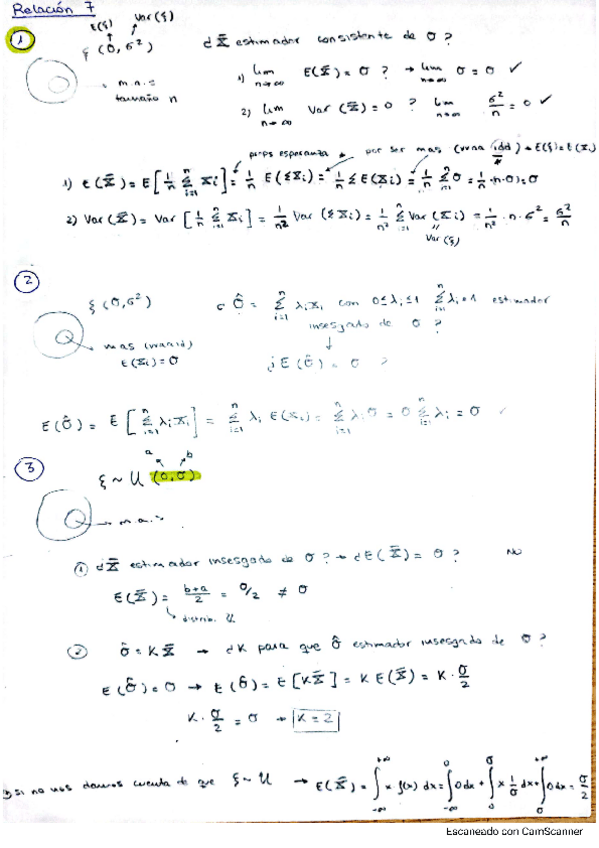 Relación 7
E(ξ) Var(ξ)
① ξ (θ, σ²) ¿ X̄ estimador consistente de θ ?
m.a.s tamaño n
1) lim n→∞ E(X̄) = θ ? → lim n→∞ θ = θ ✓
2) lim n→∞ Var(X̄) = 0 ? lim n→∞ σ²/n = 0 ✓
props esperanza por ser mas (vvaa idd) → E(ξ) = E(xi)
1) E(X̄) = E[1/n Σ i=1 n Xi] = 1/n E(ΣXi) = 1/n Σ E(Xi) = 1/n Σ i=1 n θ = 1/n · n · θ = θ
2) Var(X̄) = Var[1/n Σ i=1 n Xi] = 1/n² Var(ΣXi) = 1/n² Σ i=1 n Var(Xi) = 1/n² · n · σ² = σ²/n
Var(ξ)
② ξ (θ, σ²) ¿ θ̂ = Σ i=1 n λi xi con 0 ≤ λi ≤ 1 Σ i=1 n λi = 1 estimador
insesgado de θ ?
mas
E(Xi) = θ
¿ E(θ̂) = θ ?
E(θ̂) = E[Σ i=1 n λi Xi] = Σ i=1 n λi E(xi) = Σ i=1 n λi θ = θ Σ i=1 n λi = θ ✓
③ a b
ξ ~ U (0, θ)
m.a.s
① ¿ X̄ estimador insesgado de θ ? → ¿ E(X̄) = θ ? No
E(X̄) = b+a/2 = θ/2 ≠ θ
distrib. U
② θ̂ = K X̄ → ¿ K para que θ̂ estimador insesgado de θ ?
E(θ̂) = θ → E(θ̂) = E[K X̄] = K E(X̄) = K · θ/2
K · θ/2 = θ → K = 2
si no nos damos cuenta de que ξ ~ U → E(X̄) = ∫ -∞ +∞ x f(x) dx = ∫ -∞ 0 0 dx + ∫ 0 θ x 1/θ dx + ∫ θ +∞ 0 dx = θ/2
Escaneado con CamScanner